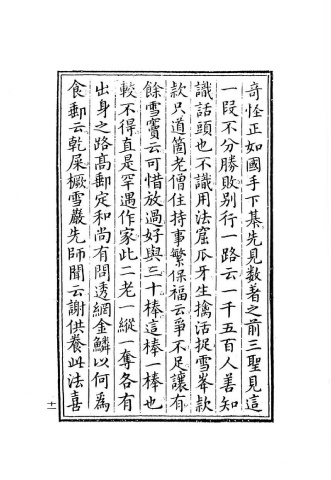 竒怪正如國手下棊先見数著之前三聖見這
一叚不分勝敗別行一路云一千五百人善知
識話頭也不識用法窟爪牙生擒活捉雪峯款
款只道箇老僧住持事繁保福云爭不足讓有
餘雪竇云可惜放過好與三十棒這棒一棒也
較不得直是罕遇作家此二老一縱一奪各有
出身之路髙郵定和尚有問透網金鱗以何為
食郵云乾屎橛雪巖先師聞云謝供養此法喜
十一